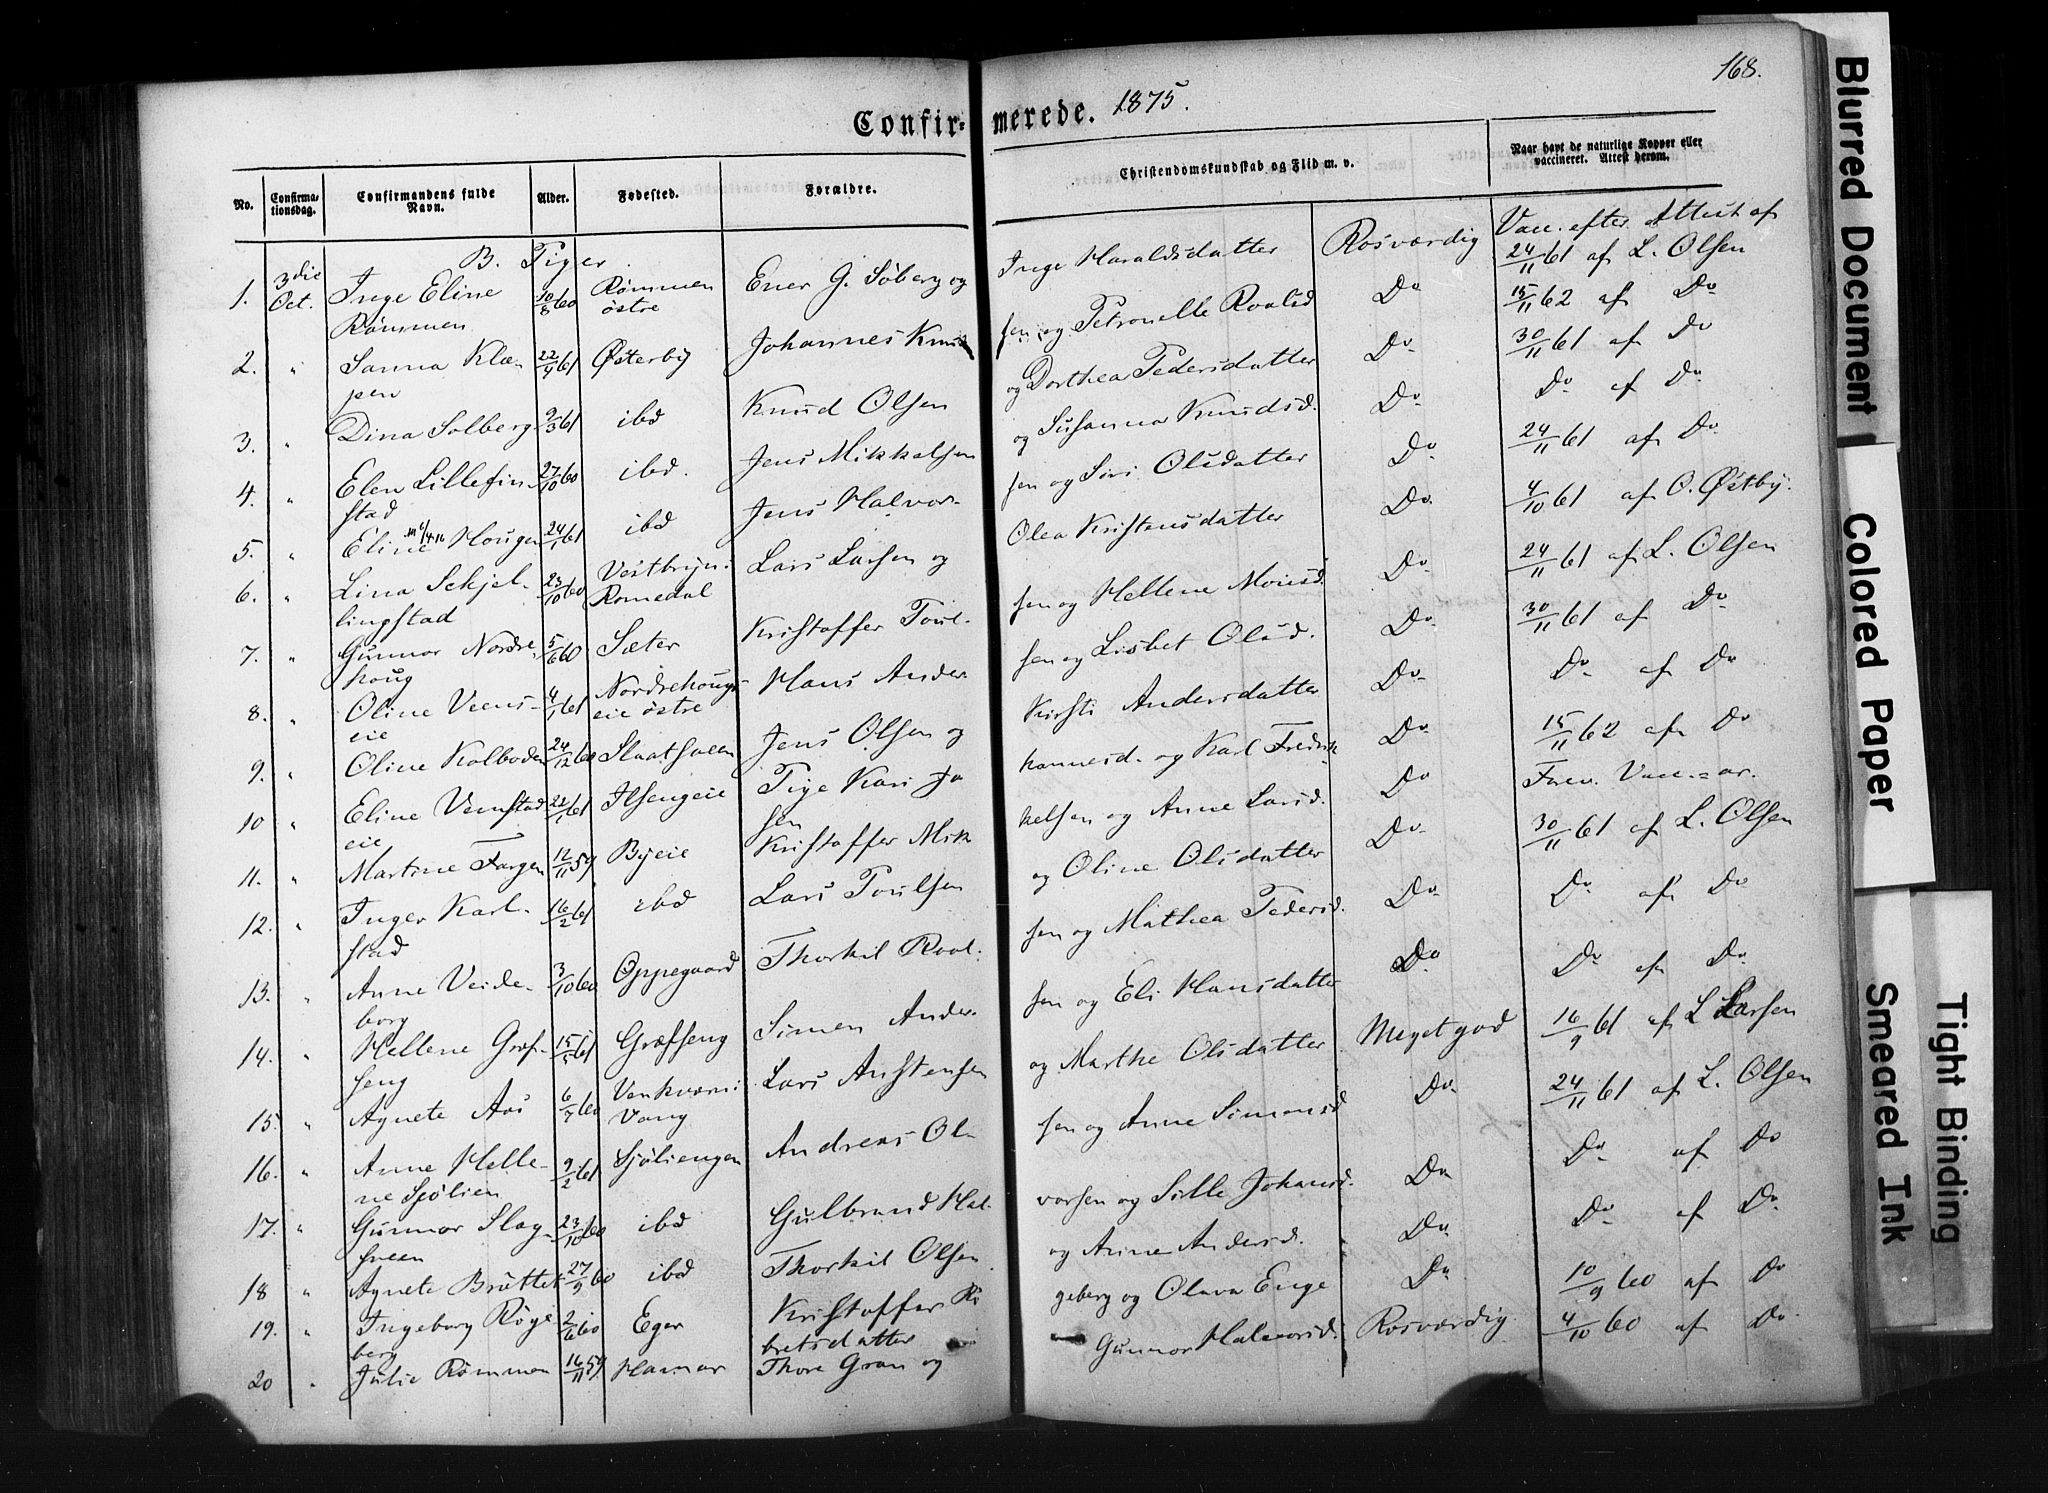 168.
Confir- merede. 1875.
No. Confirmationsdag. Confirmandens fulde Navn. Alder. Fødested. Forældre. Christendomskundskab og Flid m. v. Naar havt de naturlige Kopper eller vaccineret. Attest herom.
B. Piger.
Vacc. efter Attest af
1. 3die Oct. Inge Eline Rømmen 10/8 60 Rømmen østre Ener G. Søberg og Inge Haraldsdatter Rosværdig 24/11 61 af L. Olsen
2. " Sanna Klæpen 22/4 61 Østerby Johannes Knudsen og Petronelle Roalsd Do 15/11 62 af Do
3. " Dina Solberg 9/3 61 ibd Knud Olsen og Dorthea Pedersdatter Do 30/11 61 af Do
4. " Elen Lillefinstad 27/10 60 ibd. Jens Mikkelsen og Susanna Knudsd. Do Do af Do
5. " Eline Hougen 24/1 61 ibd Jens Halvorsen og Siri Olsdatter Do 24/11 61 af Do
6. " Lina Sehjellingstad 23/10 60 Vestbryn i Romedal Lars Larsen og Olea Kristensdatter Do 4/10 61 af O. Østby
7. " Gunnor Nordrehoug 5/6 60 Sæter Kristoffer Poulsen og Hellene Monsd. Do 24/11 61 af L. Olsen
8. " Oline Veenseie 4/1 61 Nordrehougseie østre Hans Andersen og Lisbet Olsd. Do 30/11 61 af Do
9. " Oline Kolboden 24/12 60 Slaatsveen Jens Olsen og Kirsti Andersdatter Do Do af Do
10 " Eline Vemstadeie 21/1 61 Ilsengeie Pige Kari Johannesd. og Karl Fredriksen Do 15/11 62 af Do
11. " Martine Fargen 12/11 59 Byeie Kristoffer Mikkelsen og Anne Larsd. Do Forev. Vacc.=ar.
12. " Inger Karlstad 16/2 61 ibd Lars Poulsen og Oline Olsdatter Do 30/11 61 af L. Olsen
13. " Anne Veideborg 3/10 60 Oppegaard Thorkil Roalsen og Mathea Pedersd. Do Do af Do
14. " Hellene Græfseng 15/5 61 Græfseng Simen Andersen og Eli Hansdatter Do Do af Do
15. " Agnete Aas 6/7 60 Venkværn i Vang Lars Anstensen og Marthe Olsdatter Meget god 16/9 61 af L Larsen
16. " Anne Hellene Sjølien 9/2 61 Sjøliengen Andreas Olsen og Anne Simensd Do 24/11 61 af L. Olsen
17. " Gunnor Slagsveen 23/10 60 ibd Gulbrand Halvorsen og Sille Johansd. Do Do af Do
18 " Agnete Bråttet 27/9 60 ibd Thorkil Olsen og Anne Andersd. Do Do af Do
19. " Ingeborg Røgeberg 2/6 60 Eger Kristoffer Rögeberg og Olava Engebretsdatter Do 10/9 60 af Do
20 " Julie Rømmen 16/11 59 Hamar Thore Gran og Gunnor Halvorsd. Rosværdig 4/10 60 af Do
Blurred Document
Colored Paper
Smeared Ink
Tight Binding